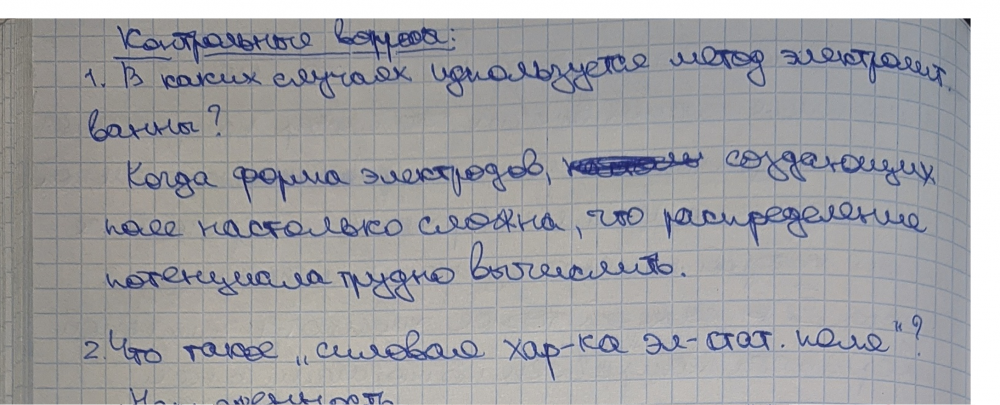 Контрольные вопросы:
1. В каких случаях используется метод электролит.
ванны?
Когда форма электродов, создающих
поле настолько сложна, что распределение
потенциала трудно вычислить.
2. Что такое „силовая хар-ка эл-стат. поля"?